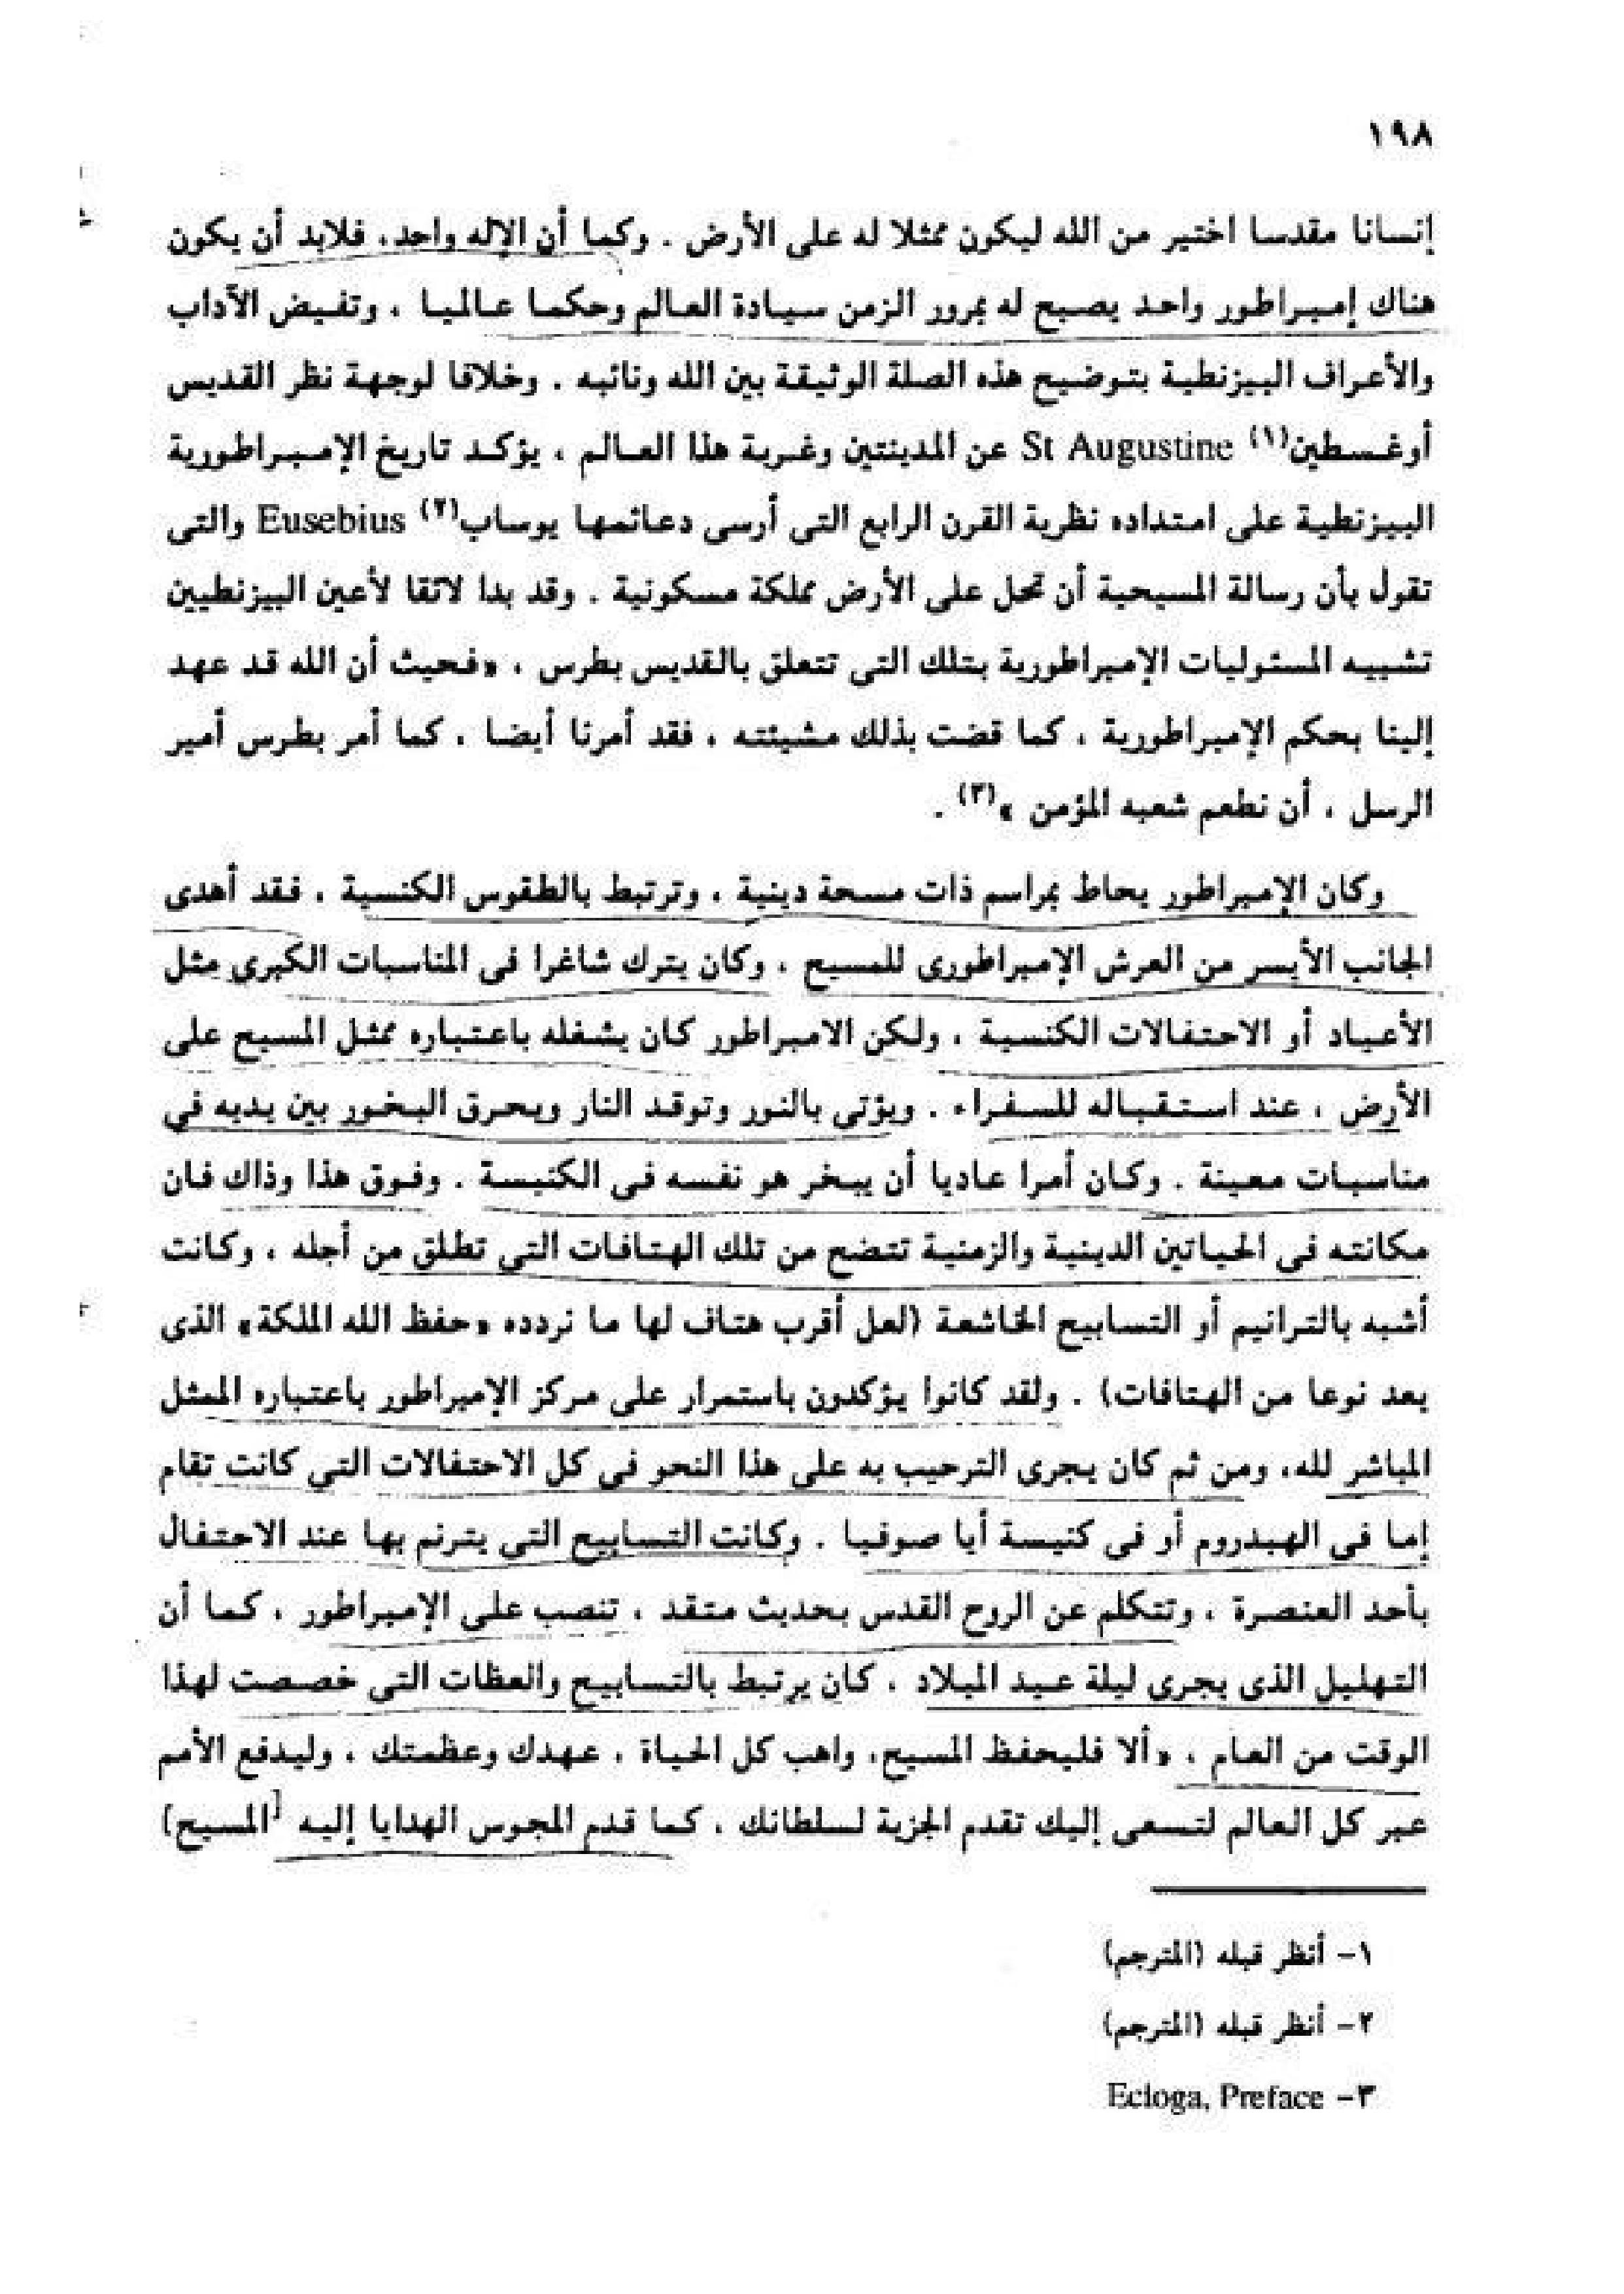 ١٩٨
إنسانا مقدسا اختير من الله ليكون ممثلا له على الأرض . وكما أن الإله واحد، فلابد أن يكون
هناك إمبراطور واحد يصبح له بمرور الزمن سيادة العالم وحكما عالميا ، وتفيض الآداب
والأعراف البيزنطية بتوضيح هذه الصلة الوثيقة بين الله ونائبه . وخلافا لوجهة نظر القديس
أوغسطين(١) St Augustine عن المدينتين وغربة هذا العالم ، يؤكد تاريخ الإمبراطورية
البيزنطية على امتداده نظرية القرن الرابع التى أرسى دعائمها يوساب(٢) Eusebius والتى
تقول بأن رسالة المسيحية أن تحل على الأرض مملكة مسكونية . وقد بدا لائقا لأعين البيزنطيين
تشبيه المسئوليات الإمبراطورية بتلك التى تتعلق بالقديس بطرس ، «فحيث أن الله قد عهد
إلينا بحكم الإمبراطورية ، كما قضت بذلك مشيئته ، فقد أمرنا أيضا ، كما أمر بطرس أمير
الرسل ، أن نطعم شعبه المؤمن »(٣) .
وكان الإمبراطور يحاط بمراسم ذات مسحة دينية ، وترتبط بالطقوس الكنسية ، فقد أهدى
الجانب الأيسر من العرش الإمبراطورى للمسيح ، وكان يترك شاغرا فى المناسبات الكبرى مثل
الأعياد أو الاحتفالات الكنسية ، ولكن الامبراطور كان يشغله باعتباره ممثل المسيح على
الأرض ، عند استقباله للسفراء . ويؤتى بالنور وتوقد النار ويحرق البخور بين يديه فى
مناسبات معينة . وكان أمرا عاديا أن يبخر هو نفسه فى الكنيسة . وفوق هذا وذاك فان
مكانته فى الحياتين الدينية والزمنية تتضح من تلك الهتافات التى تطلق من أجله ، وكانت
أشبه بالترانيم أو التسابيح الخاشعة (لعل أقرب هتاف لها ما نردده «حفظ الله الملكة» الذى
يعد نوعا من الهتافات) . ولقد كانوا يؤكدون باستمرار على مركز الإمبراطور باعتباره الممثل
المباشر لله، ومن ثم كان يجرى الترحيب به على هذا النحو فى كل الاحتفالات التى كانت تقام
إما فى الهبدروم أو فى كنيسة أيا صوفيا . وكانت التسابيح التى يترنم بها عند الاحتفال
بأحد العنصرة ، وتتكلم عن الروح القدس بحديث متقد ، تنصب على الإمبراطور ، كما أن
التهليل الذى يجرى ليلة عيد الميلاد ، كان يرتبط بالتسابيح والعظات التى خصصت لهذا
الوقت من العام ، «ألا فليحفظ المسيح، واهب كل الحياة ، عهدك وعظمتك ، وليدفع الأمم
عبر كل العالم لتسعى إليك تقدم الجزية لسلطانك ، كما قدم المجوس الهدايا إليه [المسيح)
١- أنظر قبله (المترجم)
٢- أنظر قبله (المترجم)
٣- Ecloga, Preface